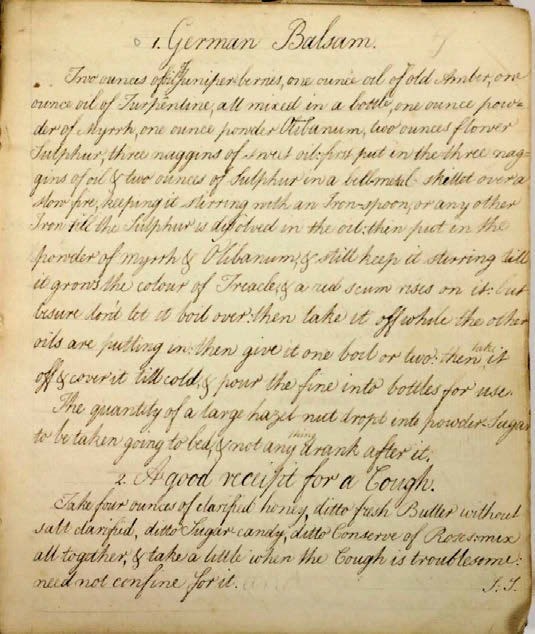 1. German Balsam.
Two ounces of oil of Juniper-berries, one ounce oil of old Amber, one
ounce oil of Turpentine, all mixed in a bottle, one ounce pow=
der of Myrrh, one ounce powder Olibanum, two ounces flower
Sulphur, three naggins of sweet oil: first put in the three nag=
gins of oil & two ounces of Sulphur in a bell-metal skellot over a
slow fire, keeping it stirring with an Iron-spoon, or any other
Iron till the Sulphur is disolved in the oil: then put in the
powder of myrrh & Olibanum, & still keep it sterring till
it grows the colour of Treacle, & a red scum rises on it: but
besure don't let it boil over: then take it off while the other
oils are putting in: then give it one boil or two: then take it
off & cover it till cold, & pour the fine into bottles for use.
The quantity of a large hazel nutt dropt into powder-Sugar
to be taken going to bed, & not any thing drank after it.
2. A good receipt for a Cough.
Take four ounces of clarified honey, ditto fresh Butter without
salt clarified, ditto Sugar candy, ditto Conserve of Roses: mix
all together, & take a little when the Cough is troublesome:
need not confine for it. J: J.